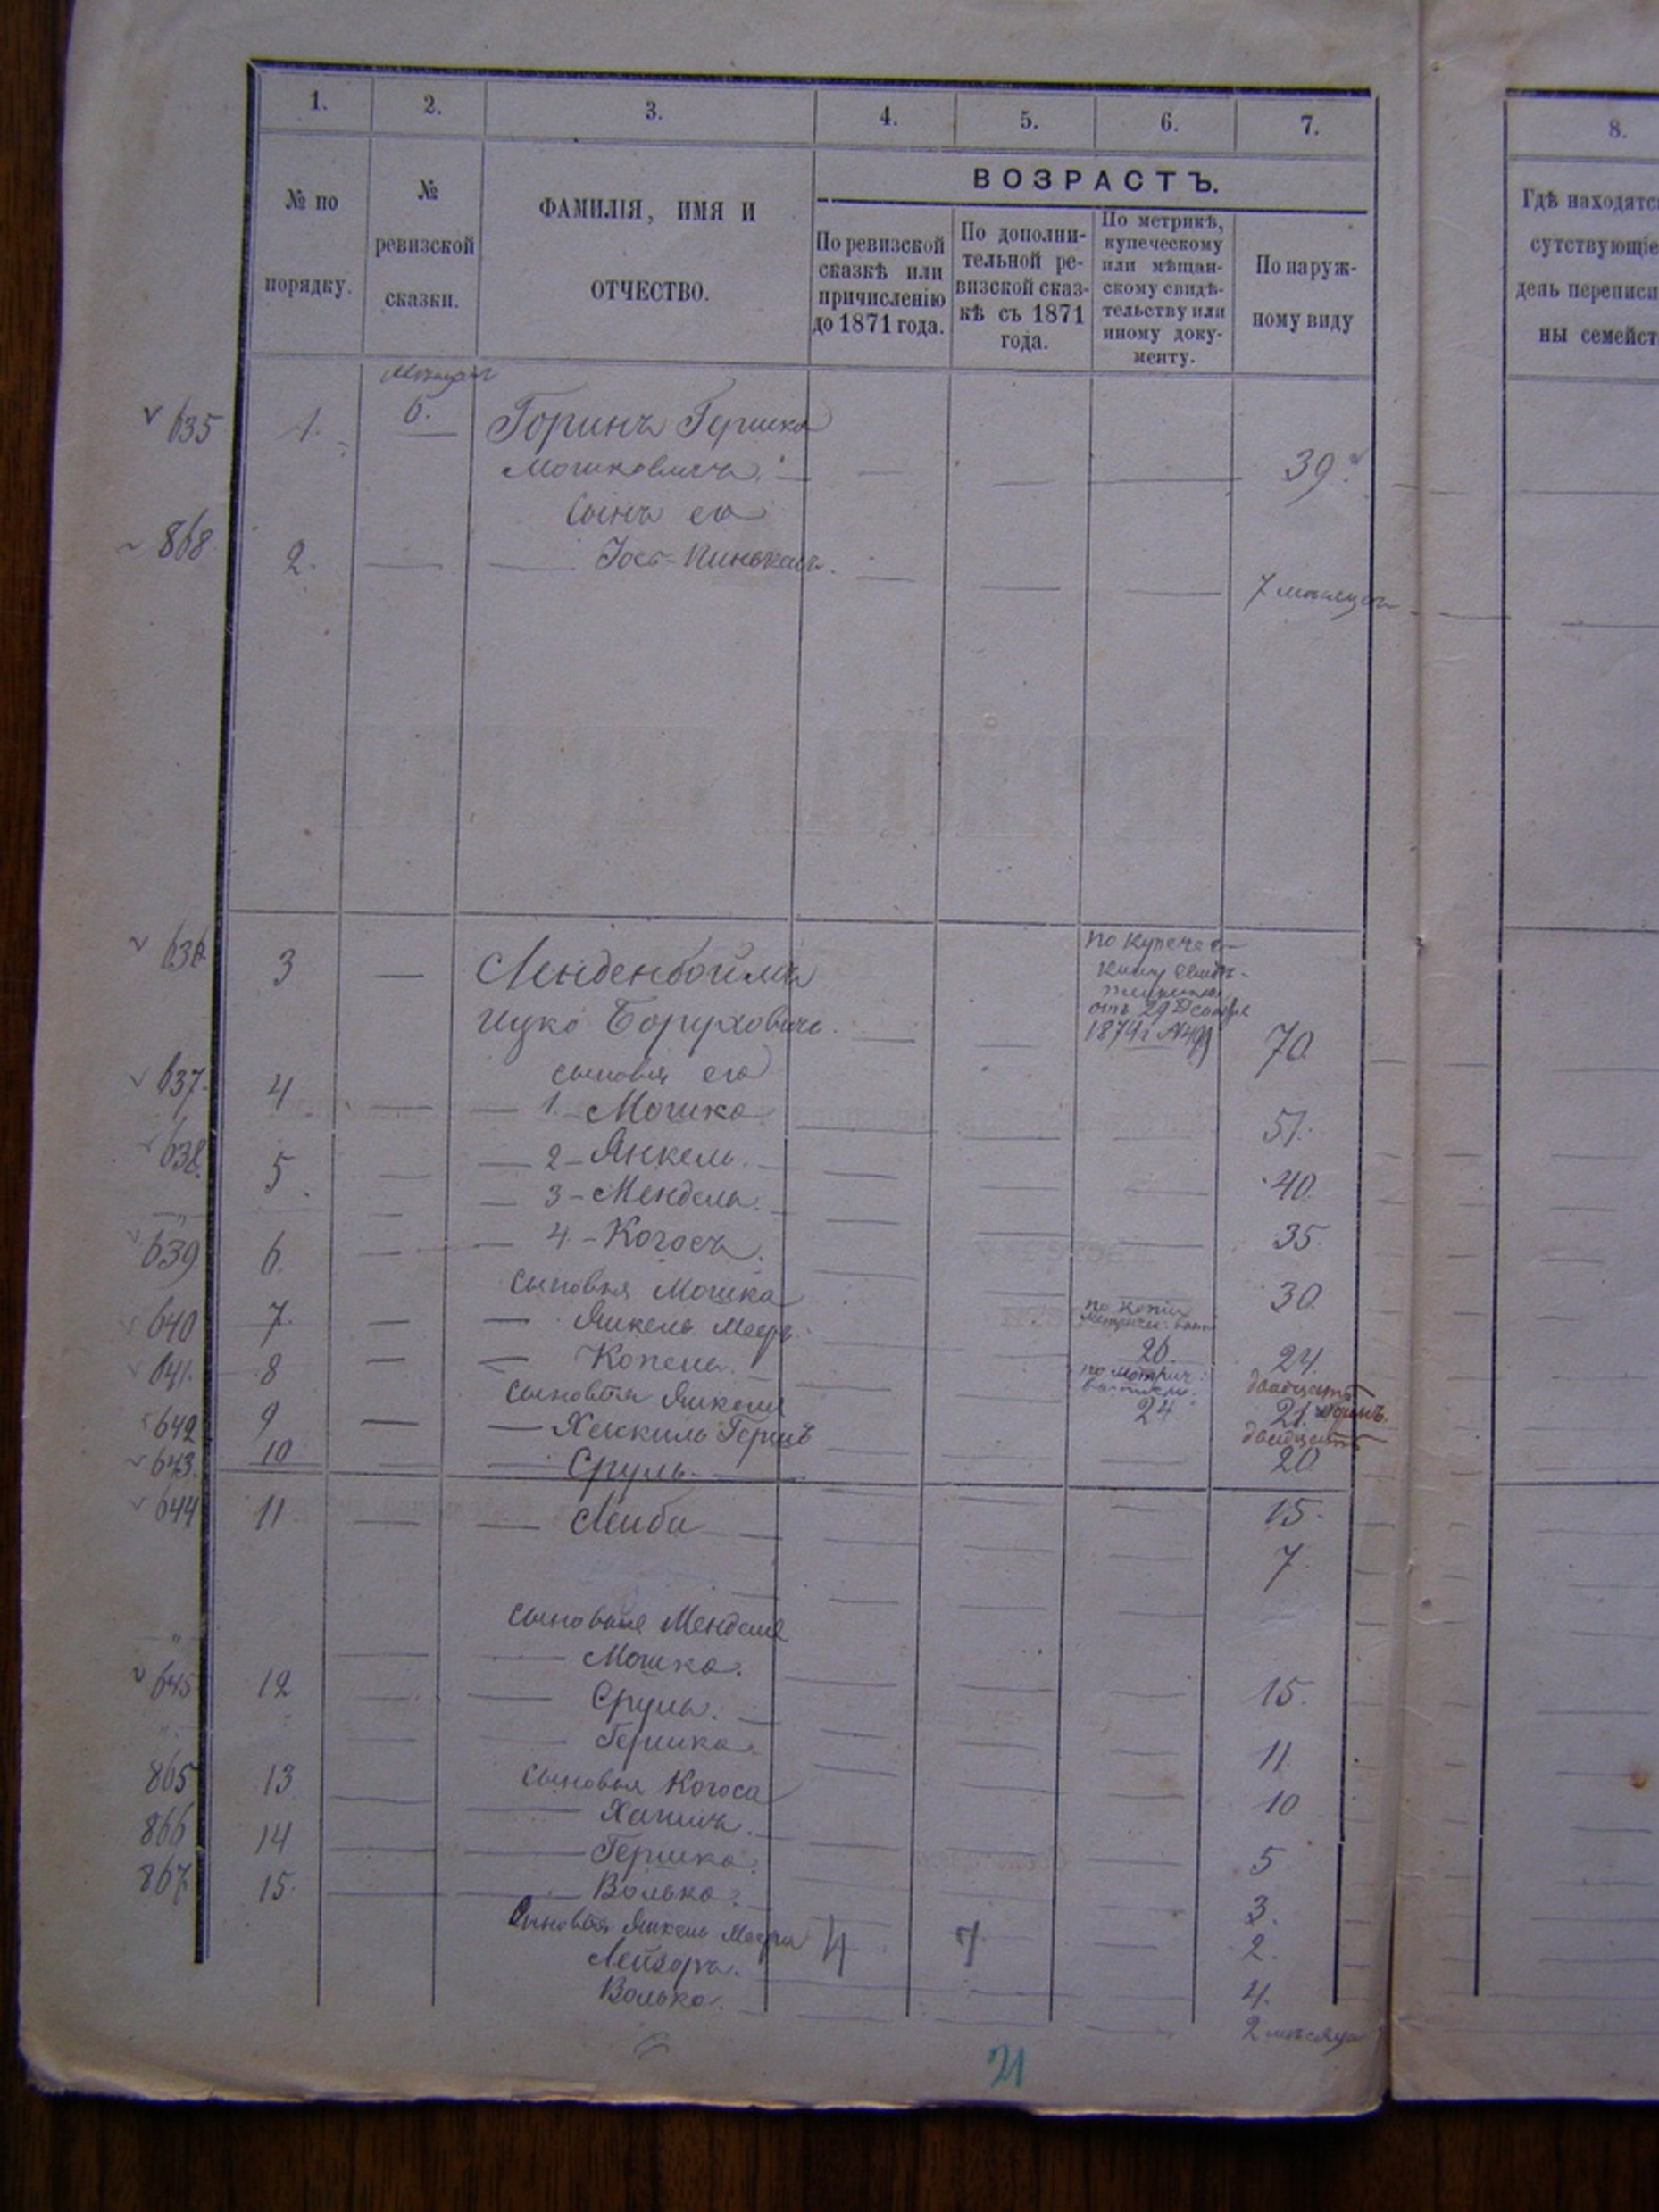 1. 2. 3. 4. 5. 6. 7. 8.
ВОЗРАСТЪ.
№ по порядку.
№ ревизской сказки.
ФАМИЛІЯ, ИМЯ И ОТЧЕСТВО.
По ревизской сказкѣ или причисленію до 1871 года.
По дополни-
тельной ре-
визской сказ-
кѣ съ 1871
года.
По метрикѣ,
купеческому
или мѣщан-
скому свидѣ-
тельству или
иному доку-
менту.
По наруж-
ному виду
Гдѣ находятс
сутствующіе
день переписи
ны семейст
635 1. 6. Горинъ Гершко
Мошковичъ 39
Сынъ его
868 2. Іось-Пинькасъ 7 мѣсяцевъ
636 3 Ленденбоймъ по купечес-
кому свидѣ-
тельству
Ицко Боруховичъ отъ 29 Декабря
1874 г № 70
сыновья его
637 4 1. Мошко 51.
638 5 2 - Янкель. 40
3 - Мендель. 35.
639 6. 4. - Когосъ. 30
сыновья Мошка
640 7. Янкель Меер по копіи
26. 24.
641. 8 Копель. по метрич:
24 двадцать
21. одинъ.
сыновья Янкеля
642 9 Хаскиль Гершъ двадцать
20
643. 10 Сруль 15.
644 11 Лейба 7.
сыновья Менделя
Мошко. 15.
645 12 Сруль. 11.
Гершко. 10
сыновья Когоса
865 13 Хаимъ. 5
866 14 Гершко. 3.
867 15. Волько. 2.
Сыновья Янкель Меера 4 7
Лейзоръ. 4.
Волько. 2 мѣсяца
21